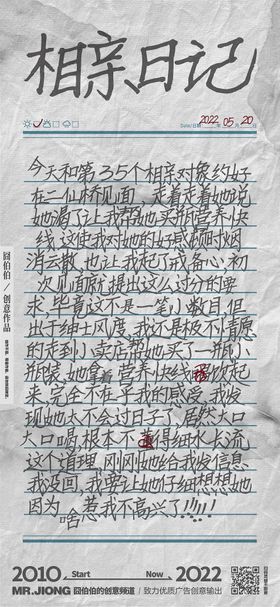 相亲日记
Date/日期 2022 05 20
今天和第35个相亲对象约好
在二仙桥见面，走着走着她说
她渴了让我帮她买瓶营养快
线，这使我对她的好感顿时烟
消云散，也让我起了戒备心，初
次见面就提出这么过分的要
求，毕竟这不是一笔小数目，但
出于绅士风度，我还是极不情愿
的走到小卖店帮她买了一瓶小
瓶装，她拿着营养快线 就吹起
来，完全不在乎我的感受，我发
现她太不会过日子了，居然大口
大口喝，根本不 得细水长流
这个道理，刚刚她给我发信息
我没回，我要让她仔细想想她
因为啥惹我不高兴了!!!!!
囧伯伯 / 创意作品
2010 Start Now 2022
MR.JIONG 囧伯伯的创意频道 / 致力优质广告创意输出